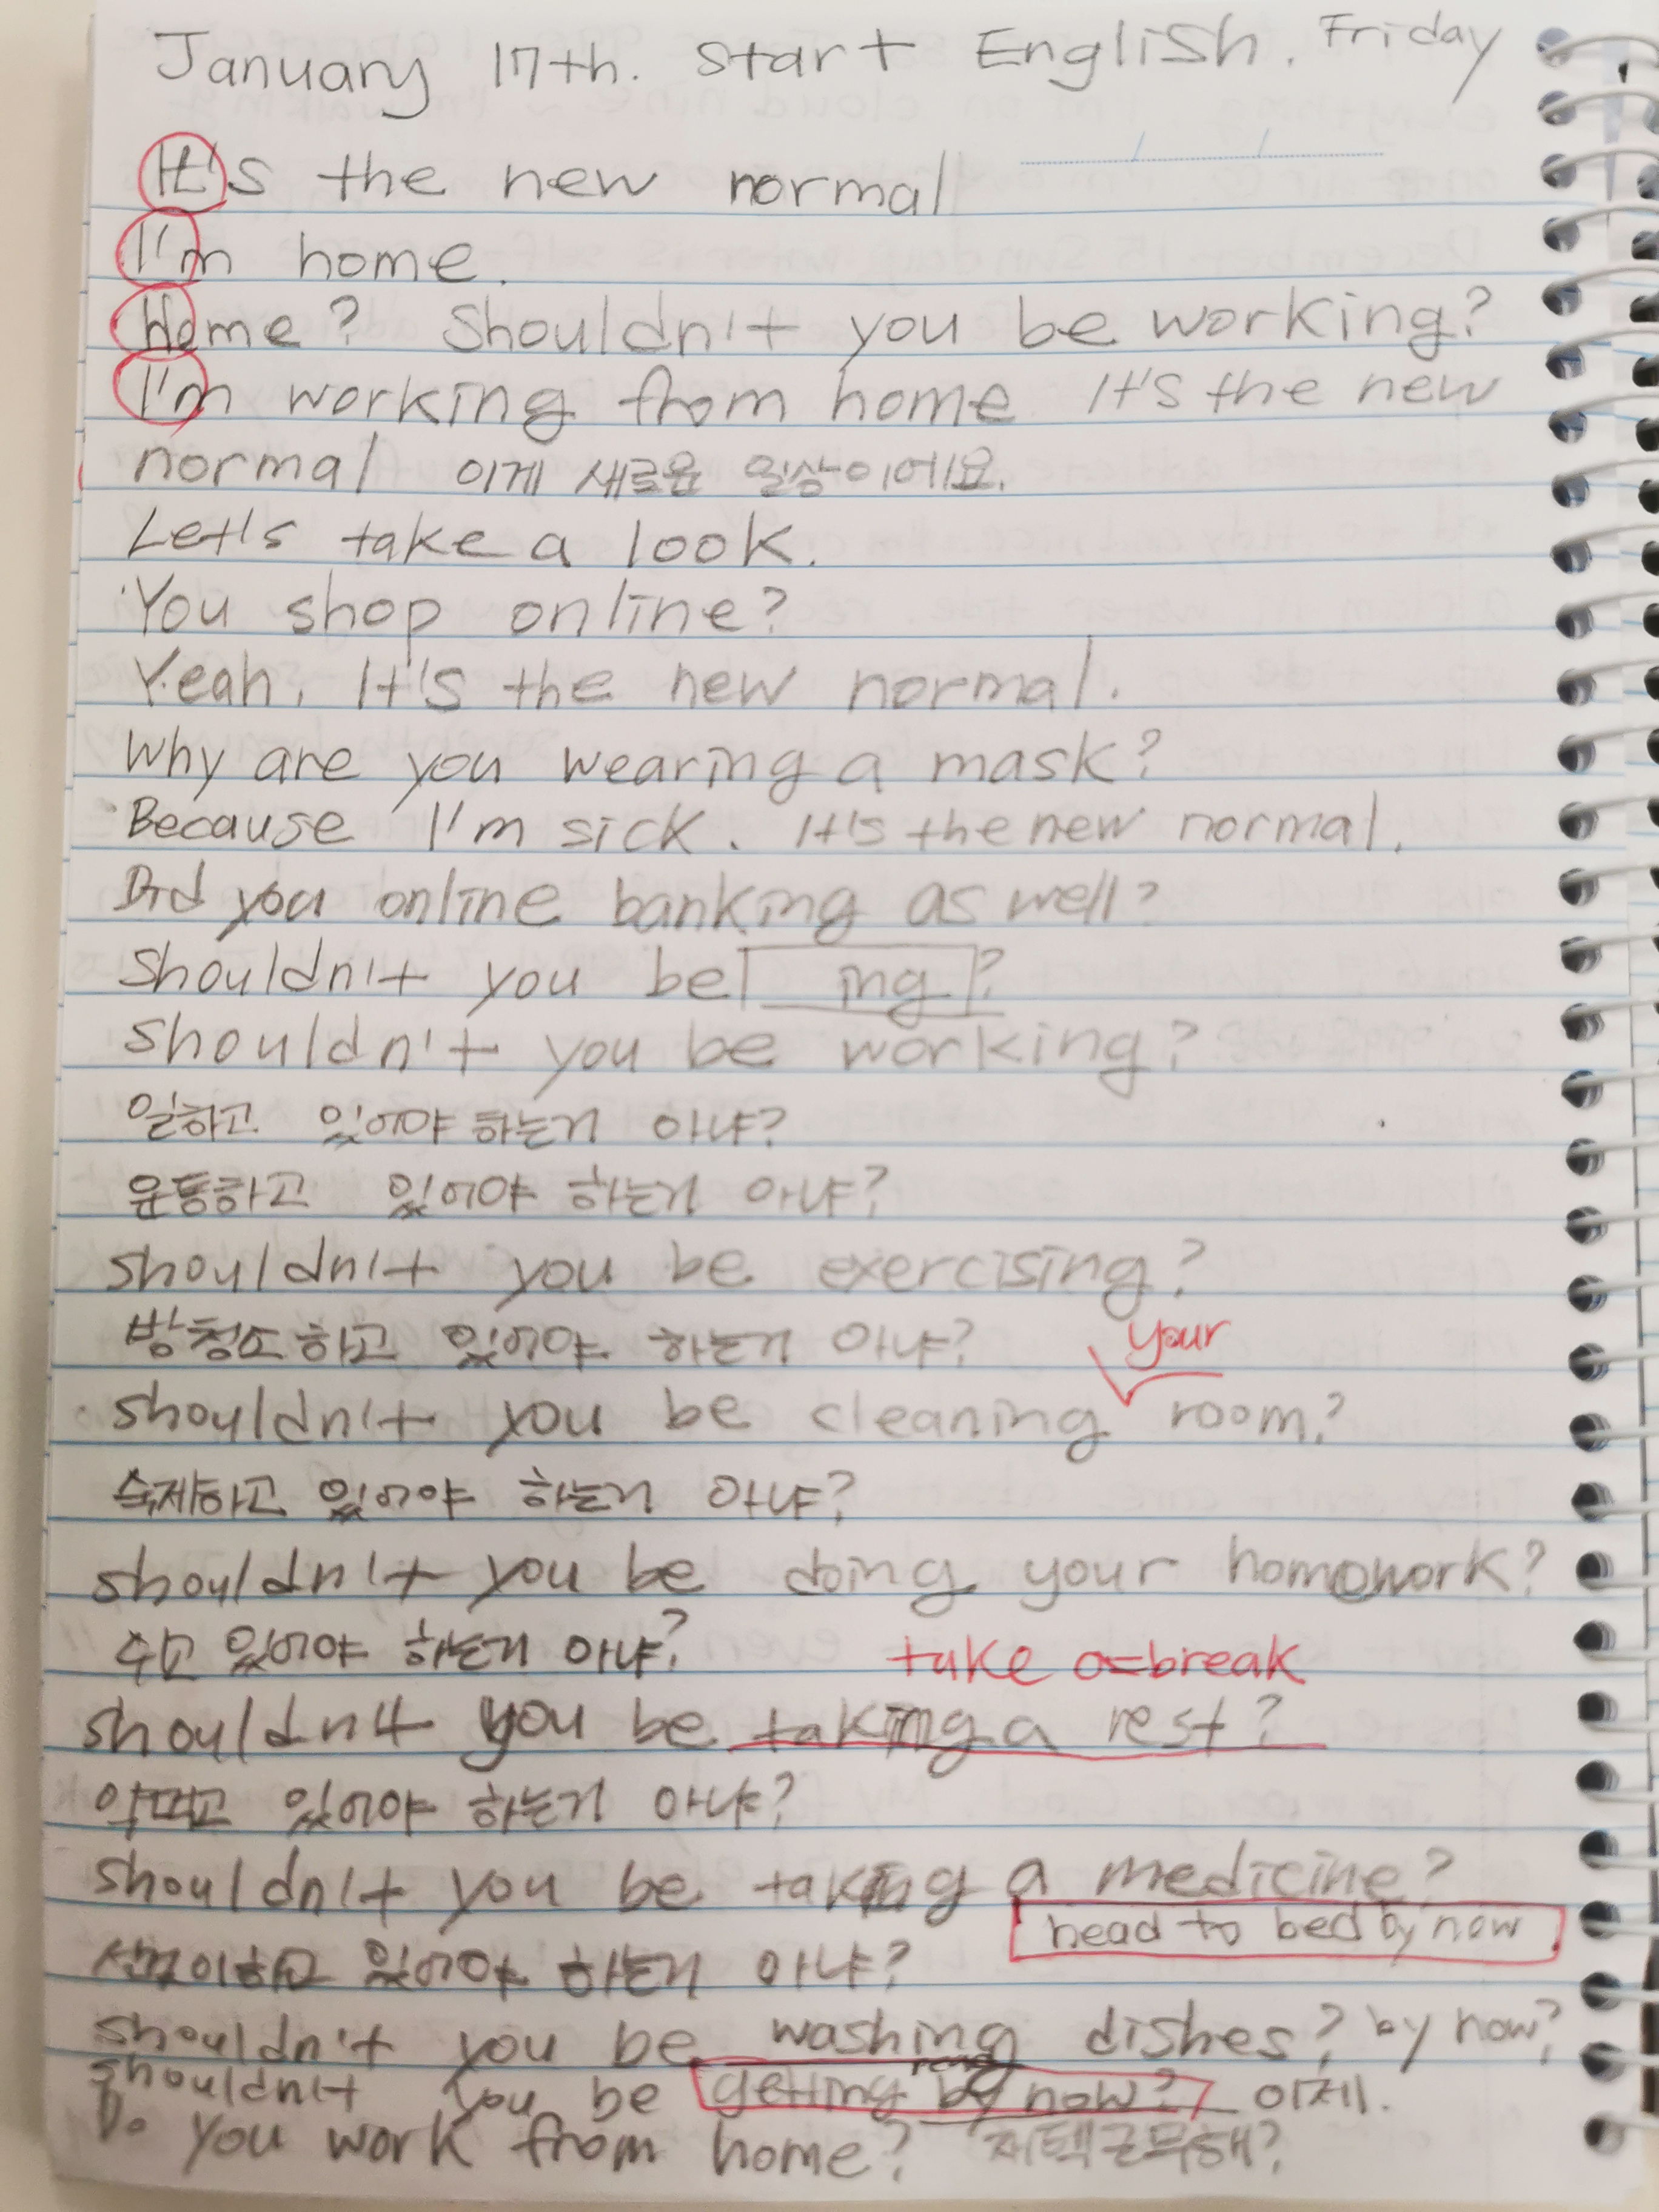 January 17th. Start English. Friday
It's the new normal
I'm home.
Home? Shouldn't you be working?
I'm working from home It's the new
normal 이게 새로운 일상이에요.
Let's take a look.
You shop online?
Yeah, It's the new normal.
Why are you wearing a mask?
Because I'm sick. It's the new normal.
Did you online banking as well?
Shouldn't you be ing?
Shouldn't you be working?
일하고 있어야 하는거 아냐?
운동하고 있어야 하는거 아냐?
shouldn't you be exercising?
방청소하고 있어야 하는거 아냐?
your
shouldn't you be cleaning room?
숙제하고 있어야 하는거 아냐?
shouldn't you be doing your homowork?
쉬고 있어야 하는거 아냐?
take a break
shouldn't you be taking a rest?
약먹고 있어야 하는거 아냐?
shouldn't you be taking a medicine?
head to bed by now
있어야 하는거 아냐?
shouldn't you be washing dishes? by now?
shouldn't you be getting by now? 이제.
Do you work from home? 재택근무해?